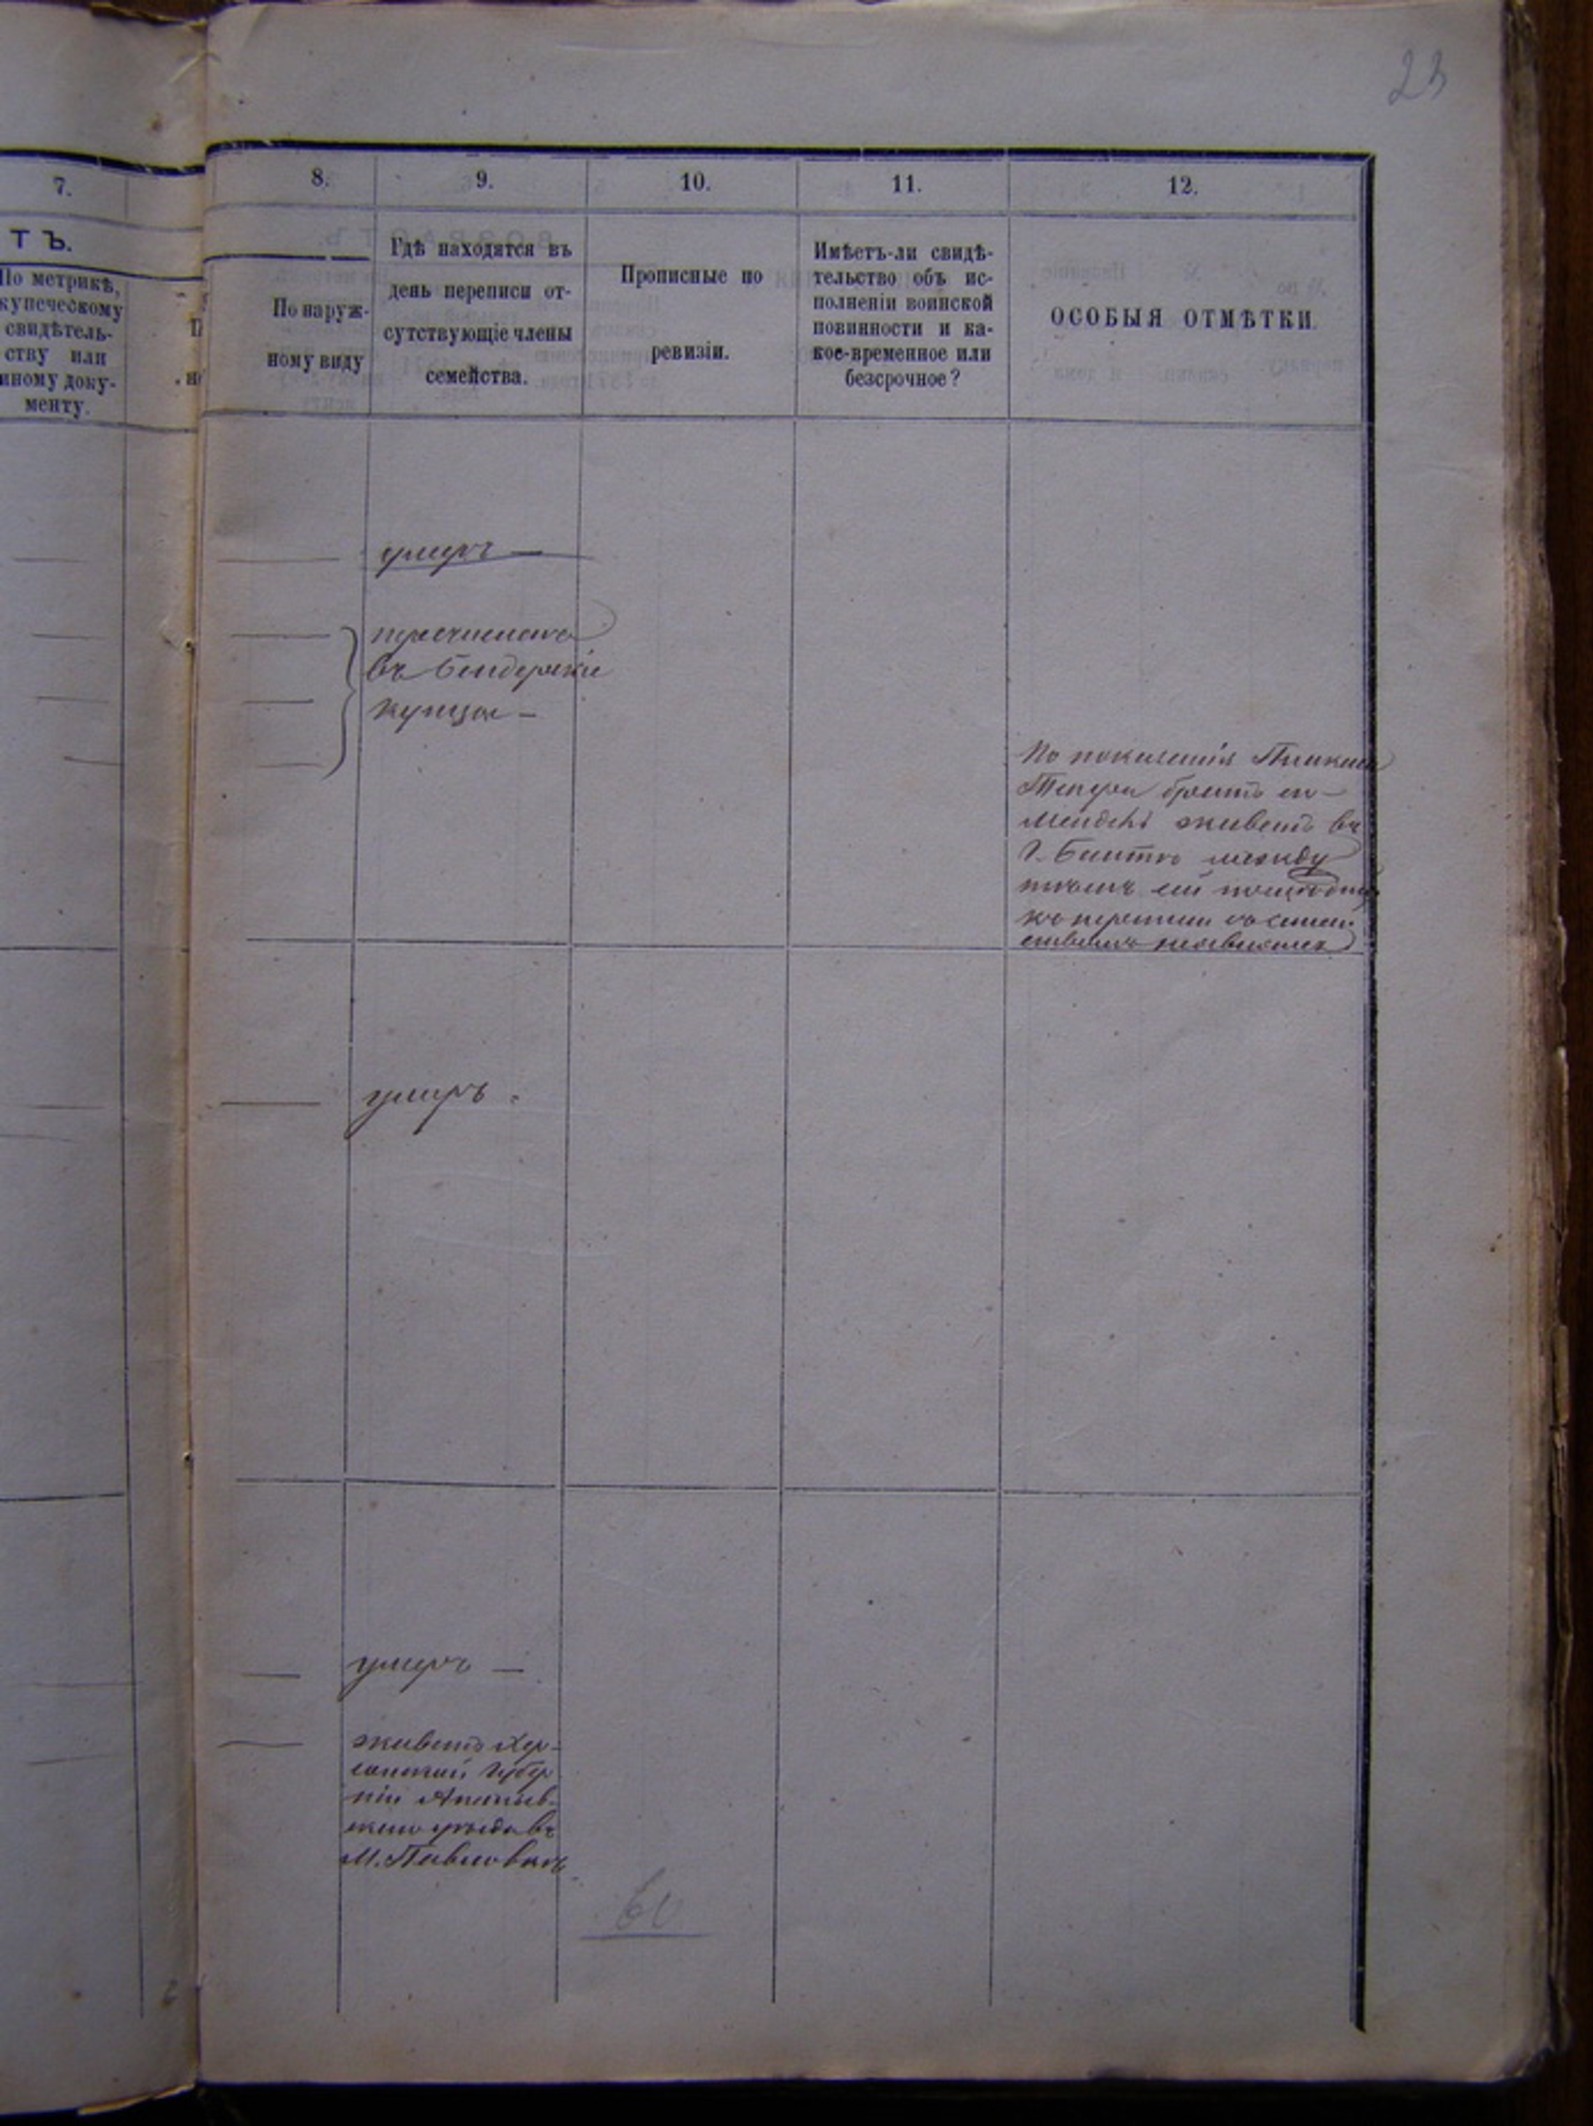 23
7.
ТЪ.
По метрикѣ,
купеческому
свидѣтель-
ству или
иному доку-
менту.
8.
По наруж-
ному виду
9.
Гдѣ находятся въ
день переписи от-
сутствующіе члены
семейства.
10.
Прописные по
ревизіи.
11.
Имѣетъ-ли свидѣ-
тельство объ ис-
полненіи воинской
повинности и ка-
кое-временное или
безсрочное?
12.
ОСОБЫЯ ОТМѢТКИ.
умеръ —
въ Бендерскіе
купцы —
По показанія
братъ его
живетъ въ
г. между
тѣмъ
къ переписи
умеръ
умеръ —
живетъ Хер-
сонской Губер
ніи Ананьев-
скаго уѣзда въ
М. Павловкѣ